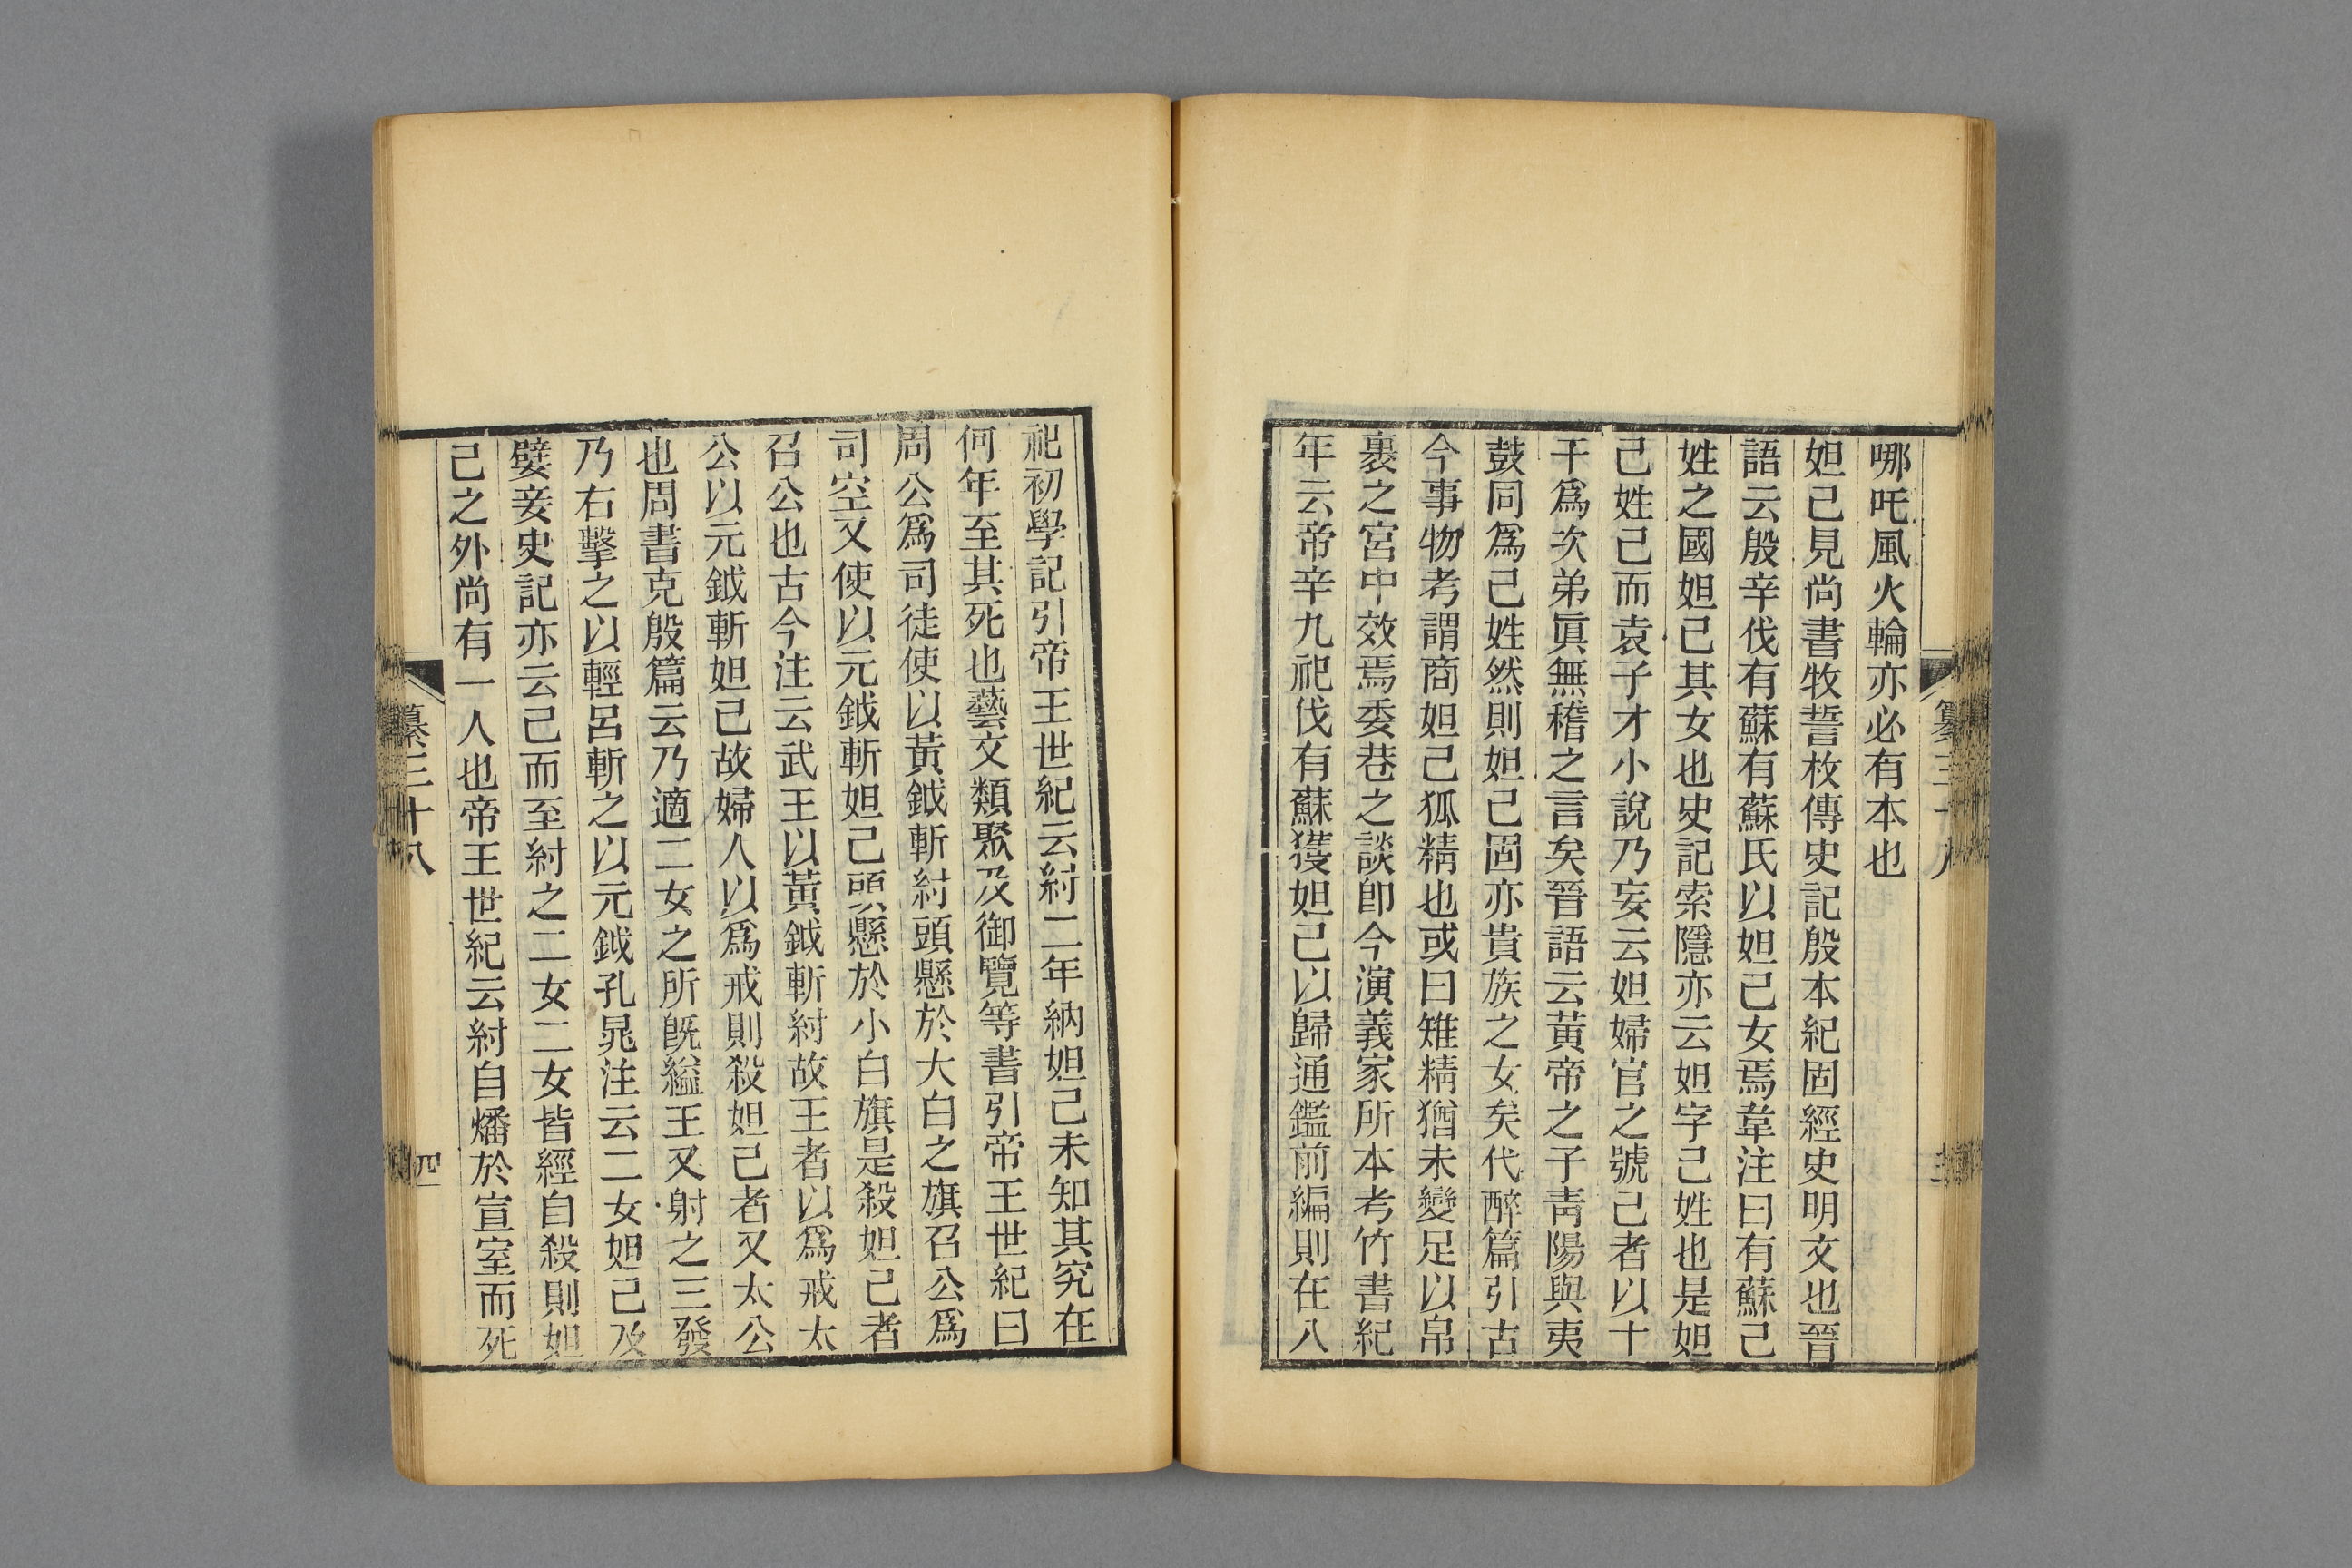 哪吒風火輪亦必有本也
妲己見尚書牧誓枚傳史記殷本紀固經史明文也晉
語云殷辛伐有蘇有蘇氏以妲己女焉韋注曰有蘇己
姓之國妲己其女也史記索隱亦云妲字己姓也是妲
己姓己而袁子才小說乃妄云妲婦官之號己者以十
干爲次弟眞無稽之言矣晉語云黃帝之子靑陽與夷
鼓同爲己姓然則妲己固亦貴族之女矣代醉篇引古
今事物考謂商妲己狐精也或曰雉精猶未變足以帛
裹之宮中效焉委巷之談卽今演義家所本考竹書紀
年云帝辛九祀伐有蘇獲妲己以歸通鑑前編則在八
纂三十八
祀初學記引帝王世紀云紂二年納妲己未知其究在
何年至其死也藝文類聚及御覽等書引帝王世紀曰
周公爲司徒使以黃鉞斬紂頭懸於大白之旗召公爲
司空又使以元鉞斬妲己頭懸於小白旗是殺妲己者
召公也古今注云武王以黃鉞斬紂故王者以爲戒太
公以元鉞斬妲己故婦人以爲戒則殺妲己者又太公
也周書克殷篇云乃適二女之所旣縊王又射之三發
乃右擊之以輕呂斬之以元鉞孔晁注云二女妲己及
嬖妾史記亦云己而至紂之二女二女皆經自殺則妲
己之外尚有一人也帝王世紀云紂自燔於宣室而死
纂三十八
四